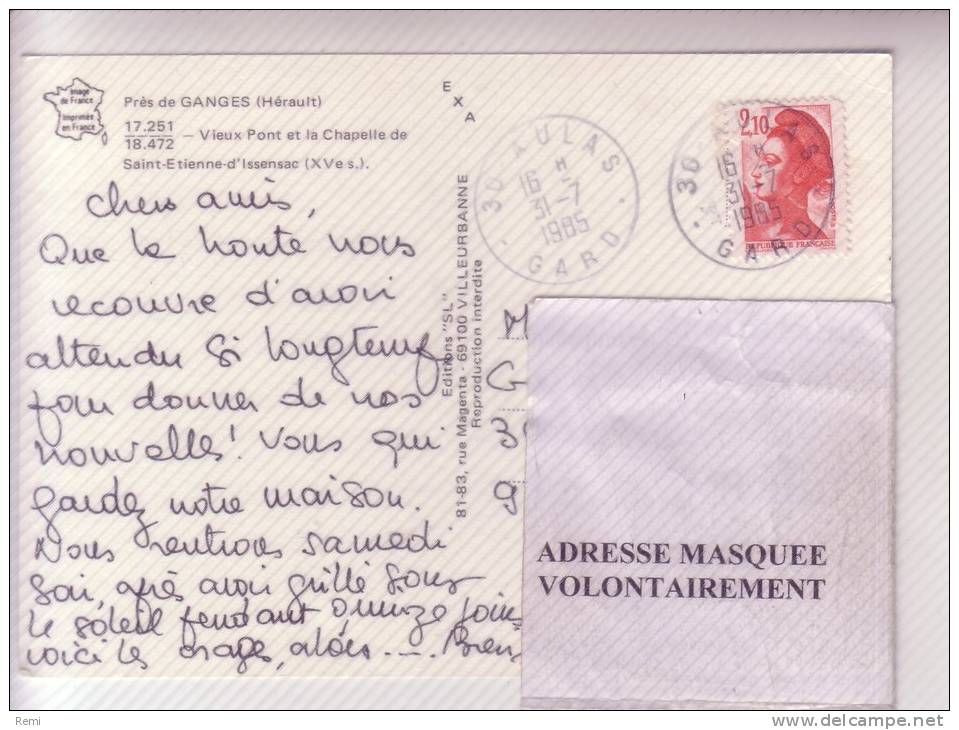 Image
de France
Imprimée
en France
Près de GANGES (Hérault)
17.251
18.472 — Vieux Pont et la Chapelle de
Saint-Etienne-d'Issensac (XVe s.).
E
X
A
Chers amis,
Que la honte nous
recouvre d'avoir
attendu si longtemps
pour donner de nos
nouvelles! Vous qui
gardez notre maison.
Nous rentrons samedi
soir, après avoir grillé sous
le soleil pendant quinze jours
voici les orages, alors.... Bien
Editions "SL"
81-83, rue Magenta - 69100 VILLEURBANNE
Reproduction interdite
30 AULAS
16 H
31-7
1985
GARD
2,10
RÉPUBLIQUE FRANÇAISE
30 AS
16 H
31-7
1985
GARD
M
G
3
9
ADRESSE MASQUEE
VOLONTAIREMENT
Remi
http://www.delcampe.net